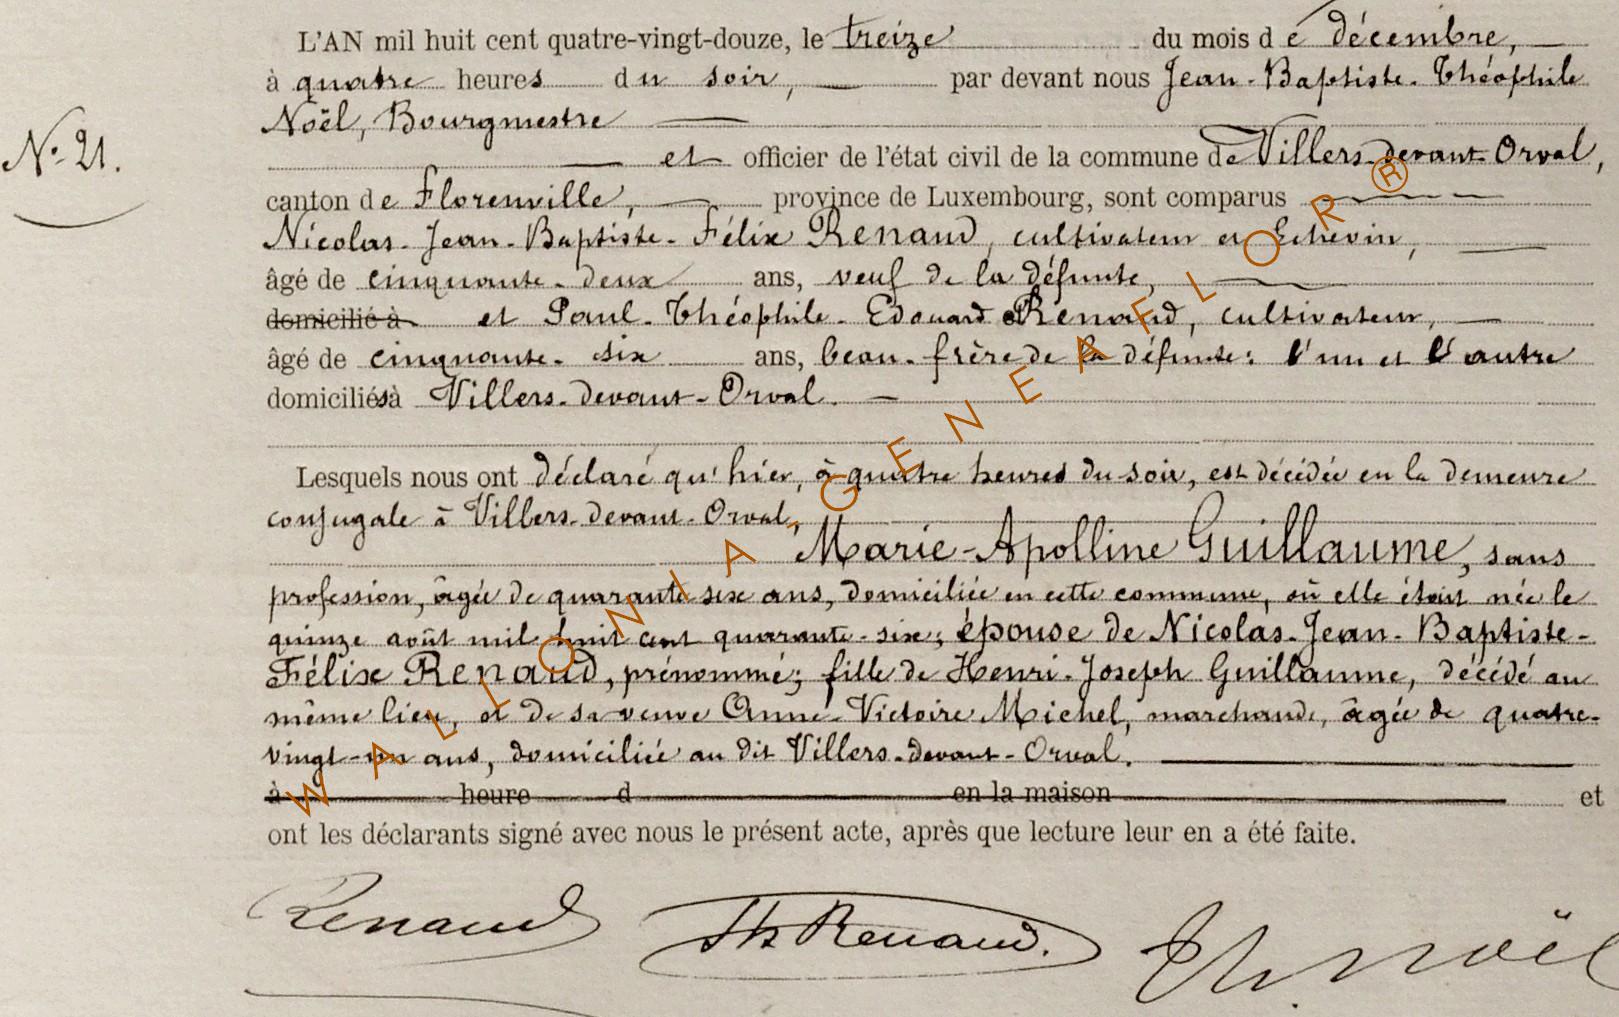 L'AN mil huit cent quatre-vingt-douze, le treize du mois de décembre,
à quatre heures du soir, par devant nous Jean-Baptiste-Théophile
Noël, Bourgmestre
N° 21.
et officier de l'état civil de la commune de Villers-devant-Orval,
canton de Florenville, province de Luxembourg, sont comparus
Nicolas-Jean-Baptiste-Félix Renaud, cultivateur et Echevin,
âgé de cinquante-deux ans, veuf de la défunte,
domicilié à et Paul-Théophile-Edouard Renaud, cultivateur,
âgé de cinquante-six ans, beau-frère de la défunte: l'un et l'autre
domiciliés à Villers-devant-Orval.
Lesquels nous ont déclaré qu'hier, à quatre heures du soir, est décédée en la demeure
conjugale à Villers-devant-Orval,
Marie-Apolline Guillaume, sans
profession, âgée de quarante six ans, domiciliée en cette commune, où elle était née le
quinze août mil huit cent quarante-six; épouse de Nicolas-Jean-Baptiste-
Félix Renaud, prénommé; fille de Henri-Joseph Guillaume, décédé au
même lieu, et de sa veuve Anne-Victoire Michel, marchande, âgée de quatre-
vingt-un ans, domiciliée au dit Villers-devant-Orval.
à heure d en la maison et
ont les déclarants signé avec nous le présent acte, après que lecture leur en a été faite.
Renaud Th Renaud. Th. Noël
WALLONIA-GENEAFLOR®